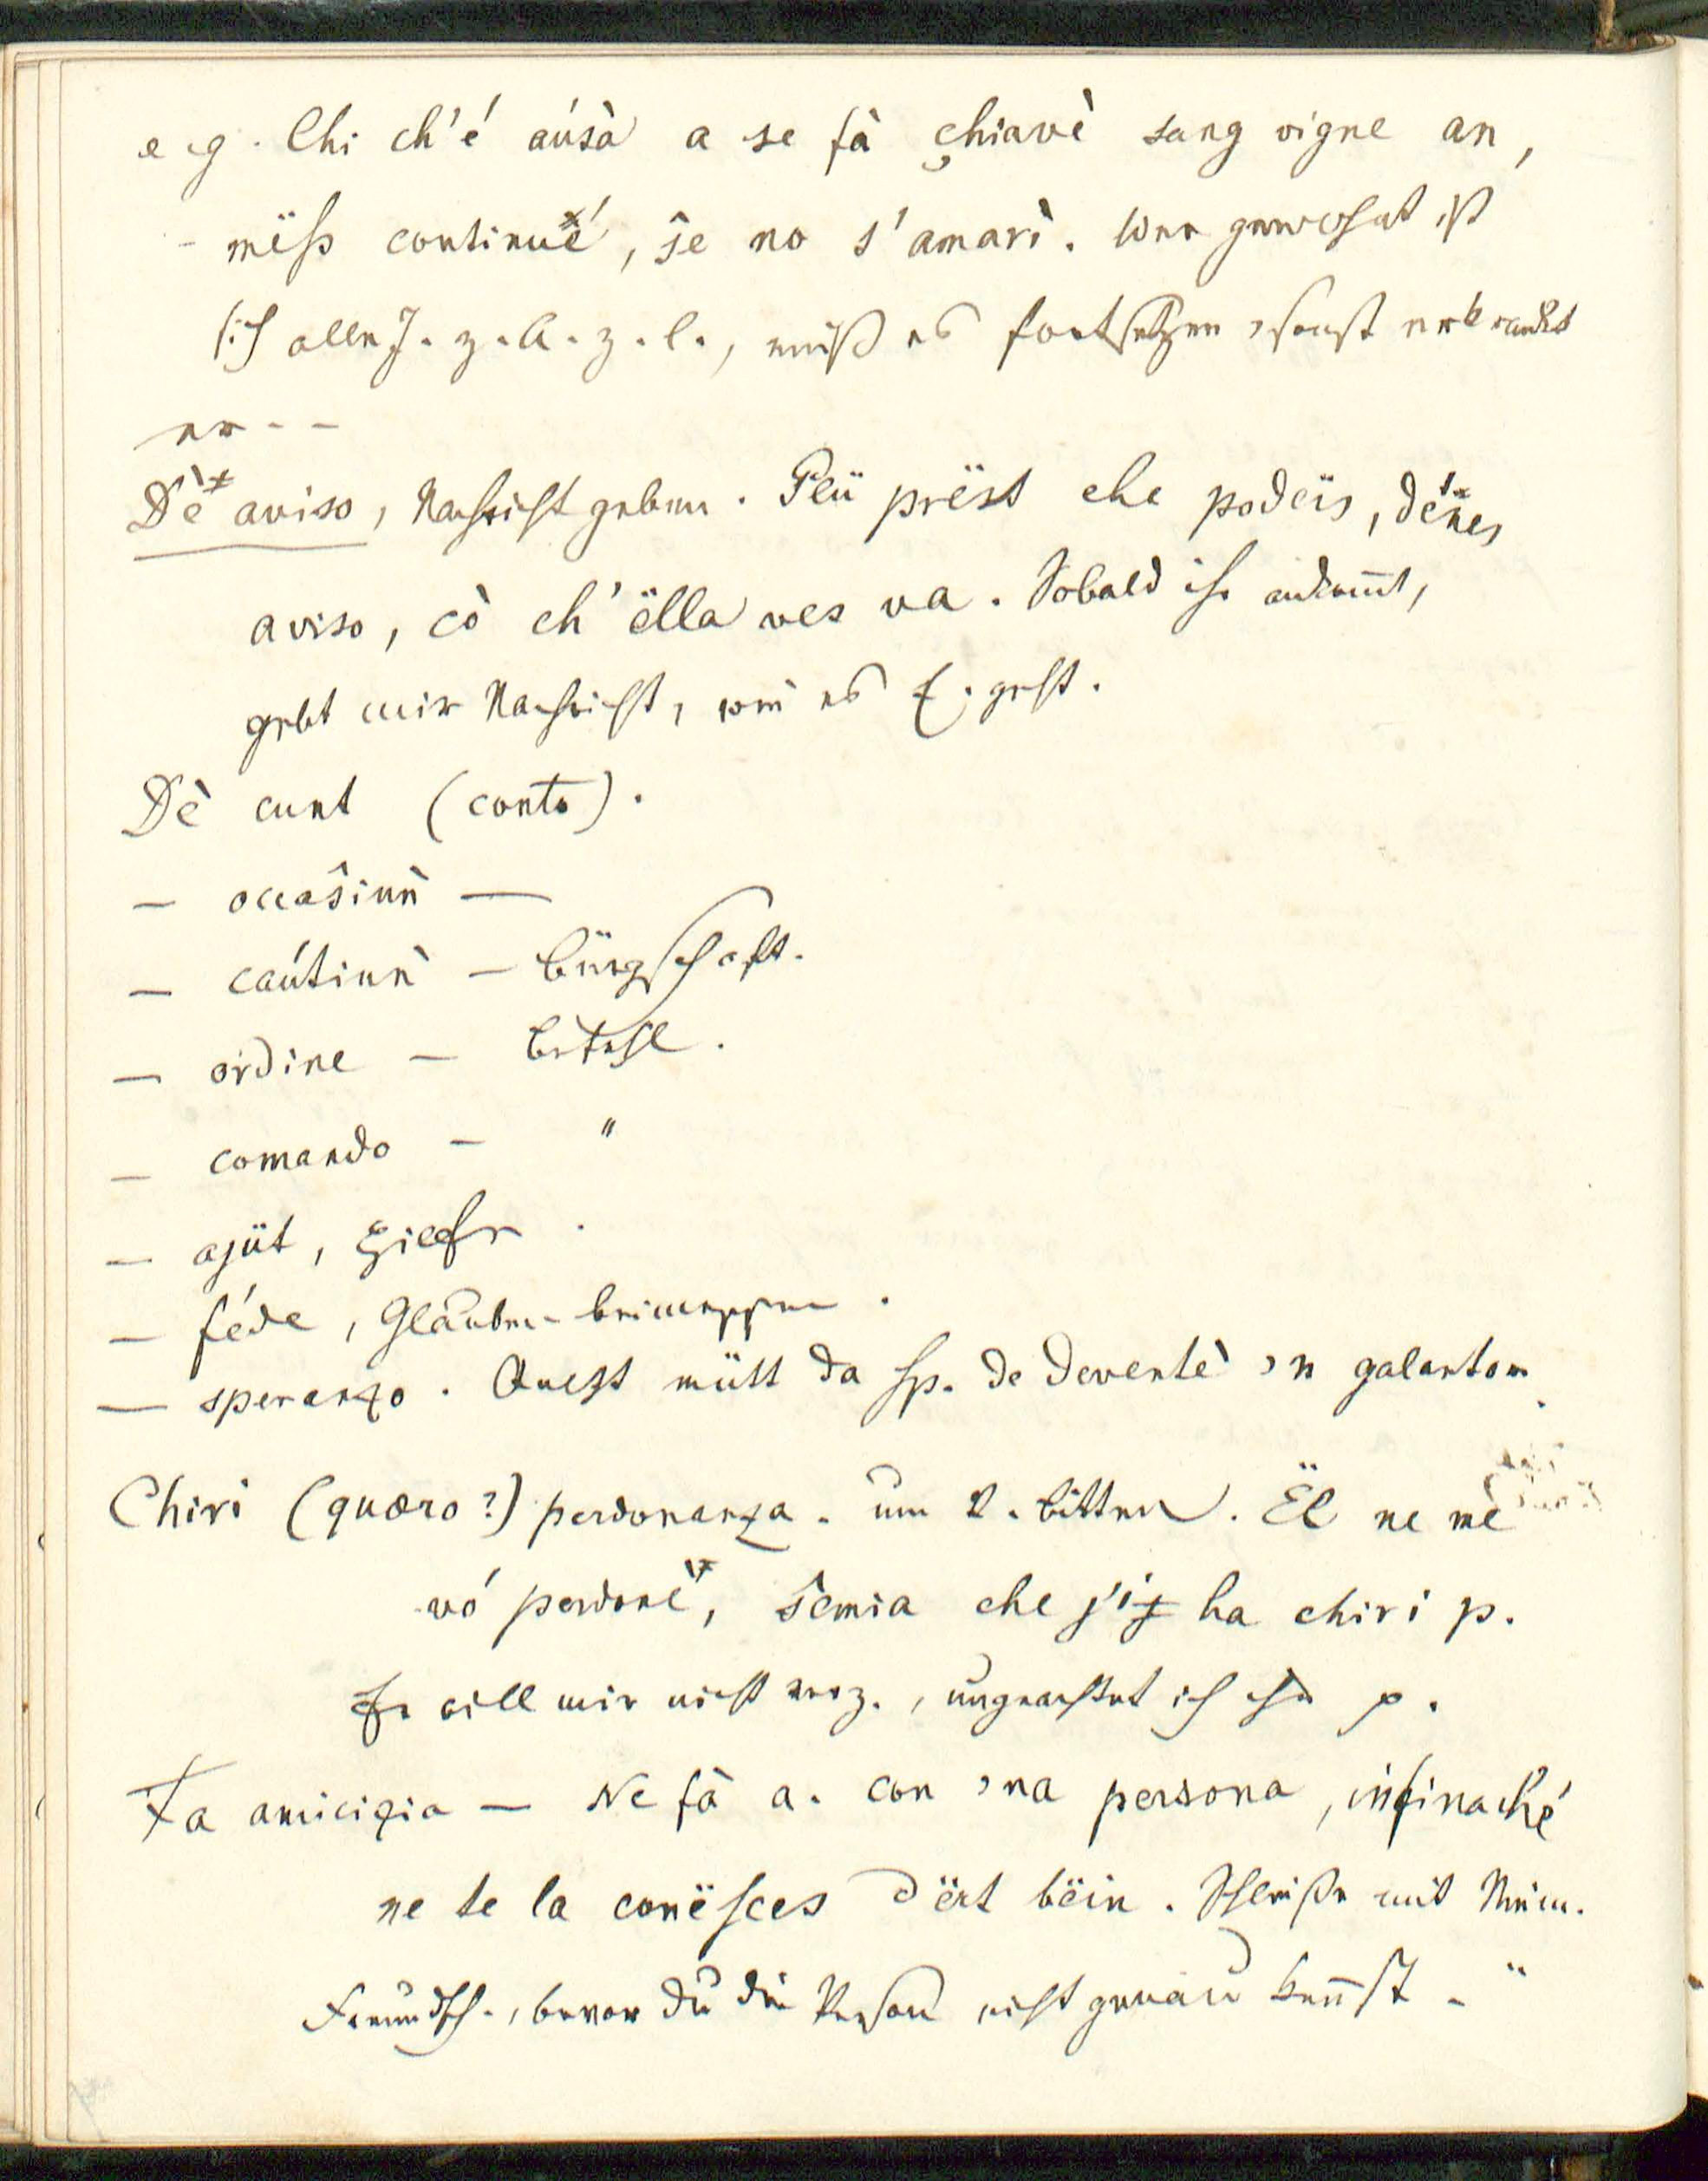 e.g. Chi ch'é aúsà a se fà çhiavè sang vigne an,
mëss continué, ŝe no s'amarì. Wer gewohnt ist
sich alle J. z. A. z. l., muß es fortsetzen, sonst erkrankt
er --
Dè aviso, Nachricht geben. Plü prëst che podëis, dénes
aviso, cò ch'ëlla ves va. Sobald ihr ankom̅t,
gebt mir Nachricht, wie es E. geht.
Dè cunt (conto).
— occaŝiun̂ —
— caútiun̂ — Bürgschaft.
— órdine — Befehl.
— comando — "
— ajüt, Hielfe.
— féde, Glauben beimessen.
— speranzo. Quest mütt da sp. de deventè 'n galantom.
Chiri (quæro?) perdonanza. um V. bitten. Ël ne mè
vó perdonè, ŝemia che j'i ha chiri p.
Er will mir nicht verz., ungeachtet ich ihn p.
Fa amicizia — Ne fà a. con 'na persona, infinaché
ne te la conësces dërt bëin. Schließe mit Niem.
Freundsch., bevor du die Person nicht genau ken̅st - "